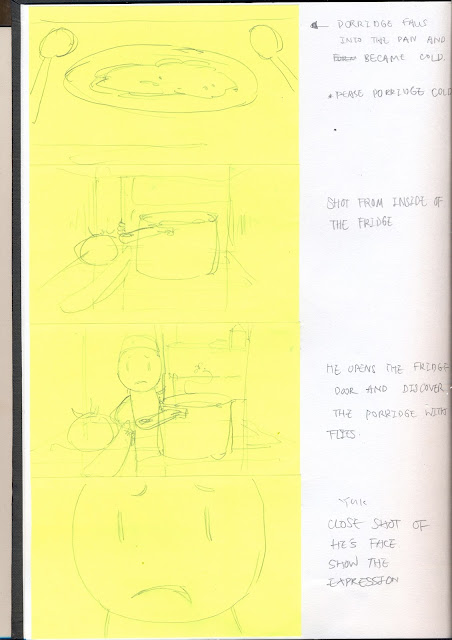 PORRIDGE FALLS
INTO THE PAN AND
BECAME COLD.
* PEASE PORRIDGE COLD
SHOT FROM INSIDE OF
THE FRIDGE
HE OPENS THE FRIDGE
DOOR AND DISCOVER
THE PORRIDGE WITH
FLIES.
YUK
CLOSE SHOT OF
HE'S FACE
SHOW THE
EXPRESSION